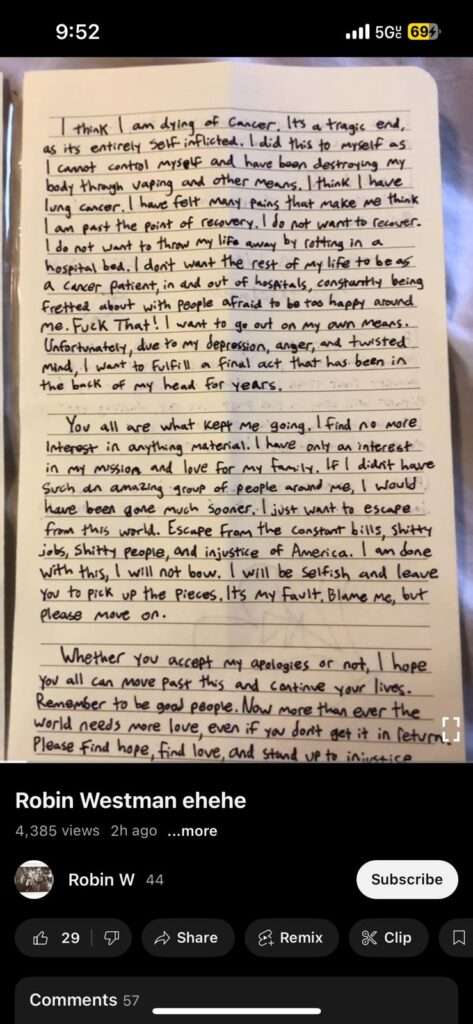 9:52
5G
69
I think I am dying of cancer. Its a tragic end,
as its entirely self inflicted. I did this to myself as
I cannot control myself and have been destroying my
body through vaping and other means. I think I have
lung cancer. I have felt many pains that make me think
I am past the point of recovery. I do not want to recover.
I do not want to throw my life away by rotting in a
hospital bed. I dont want the rest of my life to be as
a cancer patient, in and out of hospitals, constantly being
fretted about with people afraid to be too happy around
me. Fuck That! I want to go out on my own means.
Unfortunately, due to my depression, anger, and twisted
mind, I want to fulfill a final act that has been in
the back of my head for years.
You all are what kept me going. I find no more
interest in anything material. I have only an interest
in my mission and love for my family. If I didnt have
such an amazing group of people around me, I would
have been gone much sooner. I just want to escape
from this world. Escape from the constant bills, shitty
jobs, shitty people, and injustice of America. I am done
with this, I will not bow. I will be selfish and leave
you to pick up the pieces. Its my fault. Blame me, but
please move on.
Whether you accept my apologies or not, I hope
you all can move past this and continue your lives.
Remember to be good people. Now more than ever the
world needs more love, even if you dont get it in return.
Please find hope, find love, and stand up to injustice
Robin Westman ehehe
4,385 views 2h ago ...more
Robin W 44
Subscribe
29
Share
Remix
Clip
Comments 57